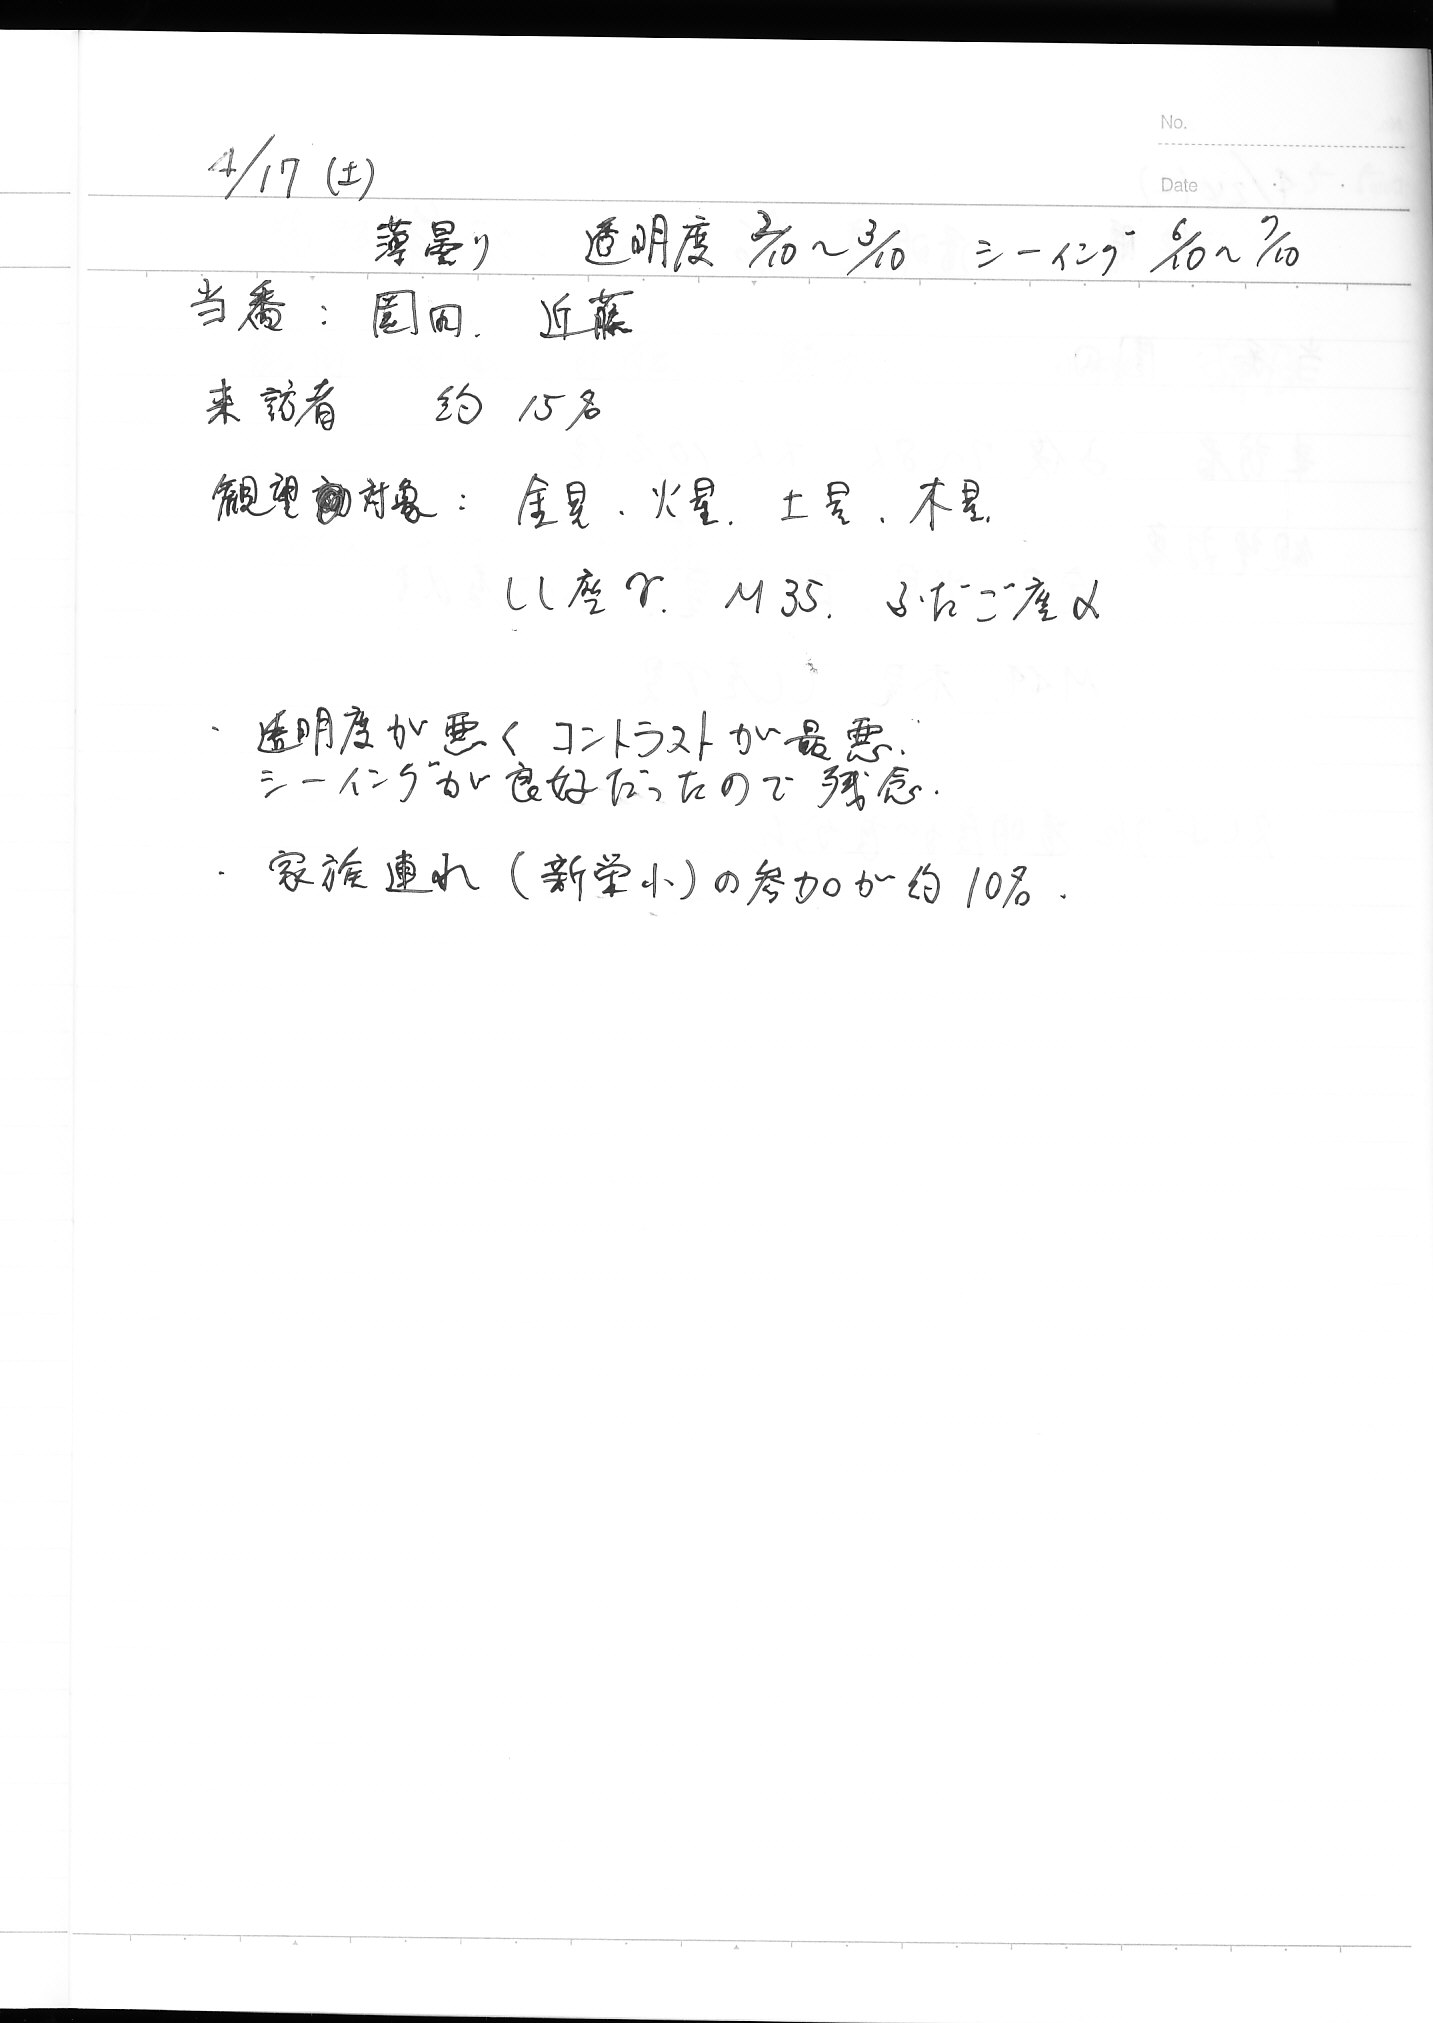 No.
4/17 (土)
Date
薄曇り 透明度 2/10～3/10 シーイング 6/10～7/10
当番： 園田. 近藤
来訪者 約 15名
観望対象： 金星、火星、土星、木星、
しし座γ. M35. ふたご座α
・透明度が悪く コントラストが最悪.
シーイングが良好だったので 残念.
・家族連れ (新栄小) の参加が約 10名.